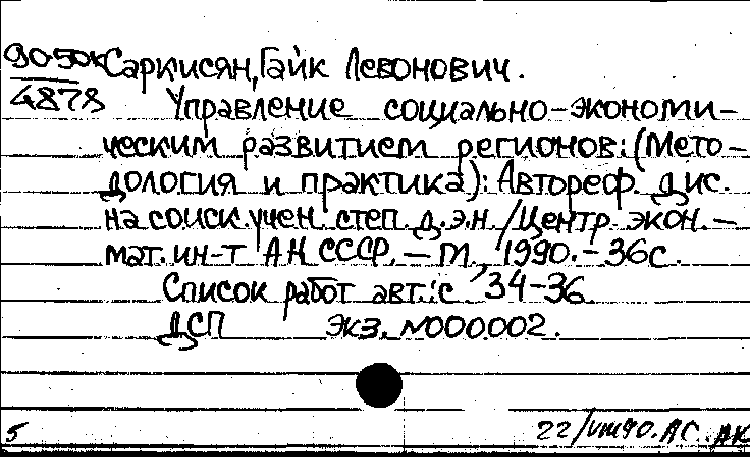 90-50к Саркисян, Гайк Левонович.
4878 Управление социально-экономи-
ческим развитием регионов: (Мето-
дология и практика): Автореф. дис.
на соиск. учен. степ. д.э.н. /Центр. экон.-
мат. ин-т АН СССР. – М., 1990. – 36с.
Список работ авт.: с. 34-36
ДСП экз. №000002.
5 22/VIII90. АС. АК